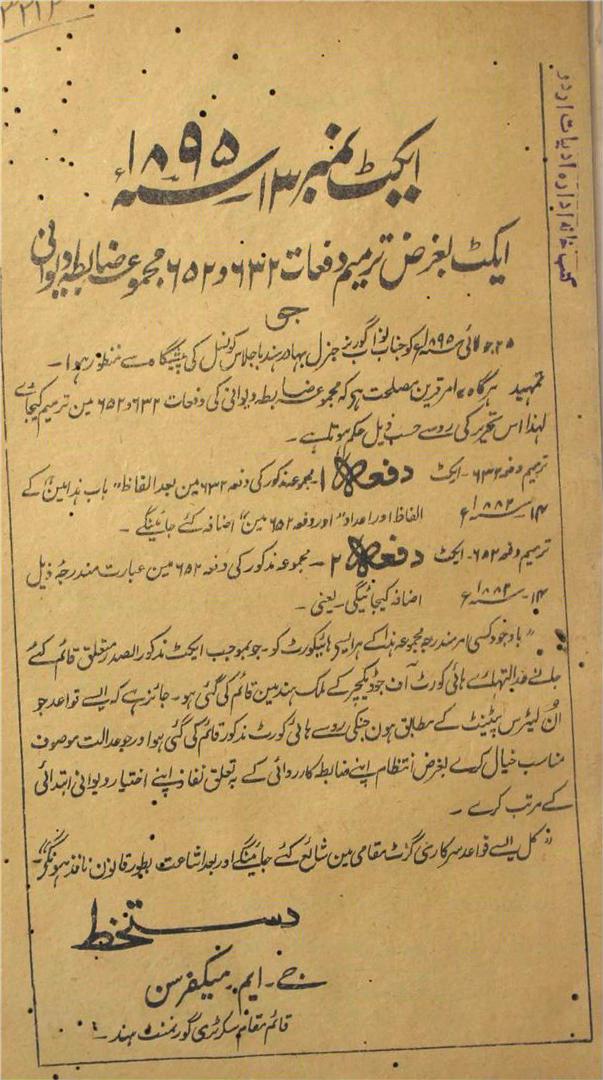 ۳۲۱۳
کتب خانہ ادارہ ادبیات اردو
ایکٹ نمبر ۱۳ سنہ ۱۸۹۵ء
ایکٹ بغرض ترمیم دفعات ۶۳۲ و ۶۵۲ مجموعہ ضابطہ دیوانی
جو
۲۵ جولائی سنہ ۱۸۹۵ء کو جناب نواب گورنر جنرل بہادر ہند باجلاس کونسل کی پیشگاہ سے منظور ہوا۔
تمہید ہرگاہ یہ امر قرین مصلحت ہے کہ مجموعہ ضابطہ دیوانی کی دفعات ۶۳۲ و ۶۵۲ مین ترمیم کیجاے
لہذا اس تحریر کی روسے حسب ذیل حکم ہوتا ہے۔
ترمیم دفعہ ۶۳۲۔ ایکٹ دفعہ ۱۔ مجموعہ مذکور کی دفعہ ۶۳۲ مین بعد الفاظ "باب ہذا مین" کے
۱۴ سنہ ۱۸۸۲ء الفاظ اور اعداد "اور دفعہ ۶۵۲ مین" اضافہ کئے جائینگے۔
ترمیم دفعہ ۶۵۲۔ ایکٹ دفعہ ۲۔ مجموعہ مذکور کی دفعہ ۶۵۲ مین عبارت مندرجہ ذیل
۱۴ سنہ ۱۸۸۲ء اضافہ کیجائیگی۔ یعنی۔
"باوجود کسی امر مندرجہ مجموعہ ہذا کے ہر ایسی ہائیکورٹ کو۔ جو بموجب ایکٹ مذکور الصدر متعلق قائم کئے
جانے عدالتہاے ہائی کورٹ آف جوڈیکیچر کے ملک ہند مین قائم کی گئی ہو۔ جائز ہے کہ ایسے قواعد جو
اُن لیٹرس پیٹنٹ کے مطابق ہون جنکی روسے ہائی کورٹ مذکور قائم کی گئی ہو اور جو عدالت موصوف
مناسب خیال کرے بغرض انتظام اپنے ضابطہ کارروائی کے بہ تعلق نفاذ اپنے اختیار دیوانی ابتدائی
کے مرتب کرے۔
"کل ایسے قواعد سرکاری گزٹ مقامی مین شائع کئے جائینگے اور بعد اشاعت بطور قانون نافذ ہونگے"۔
دستخط
جے۔ ایم۔ میکفرسن
قائم مقام سکرٹری گورنمنٹ ہند۔